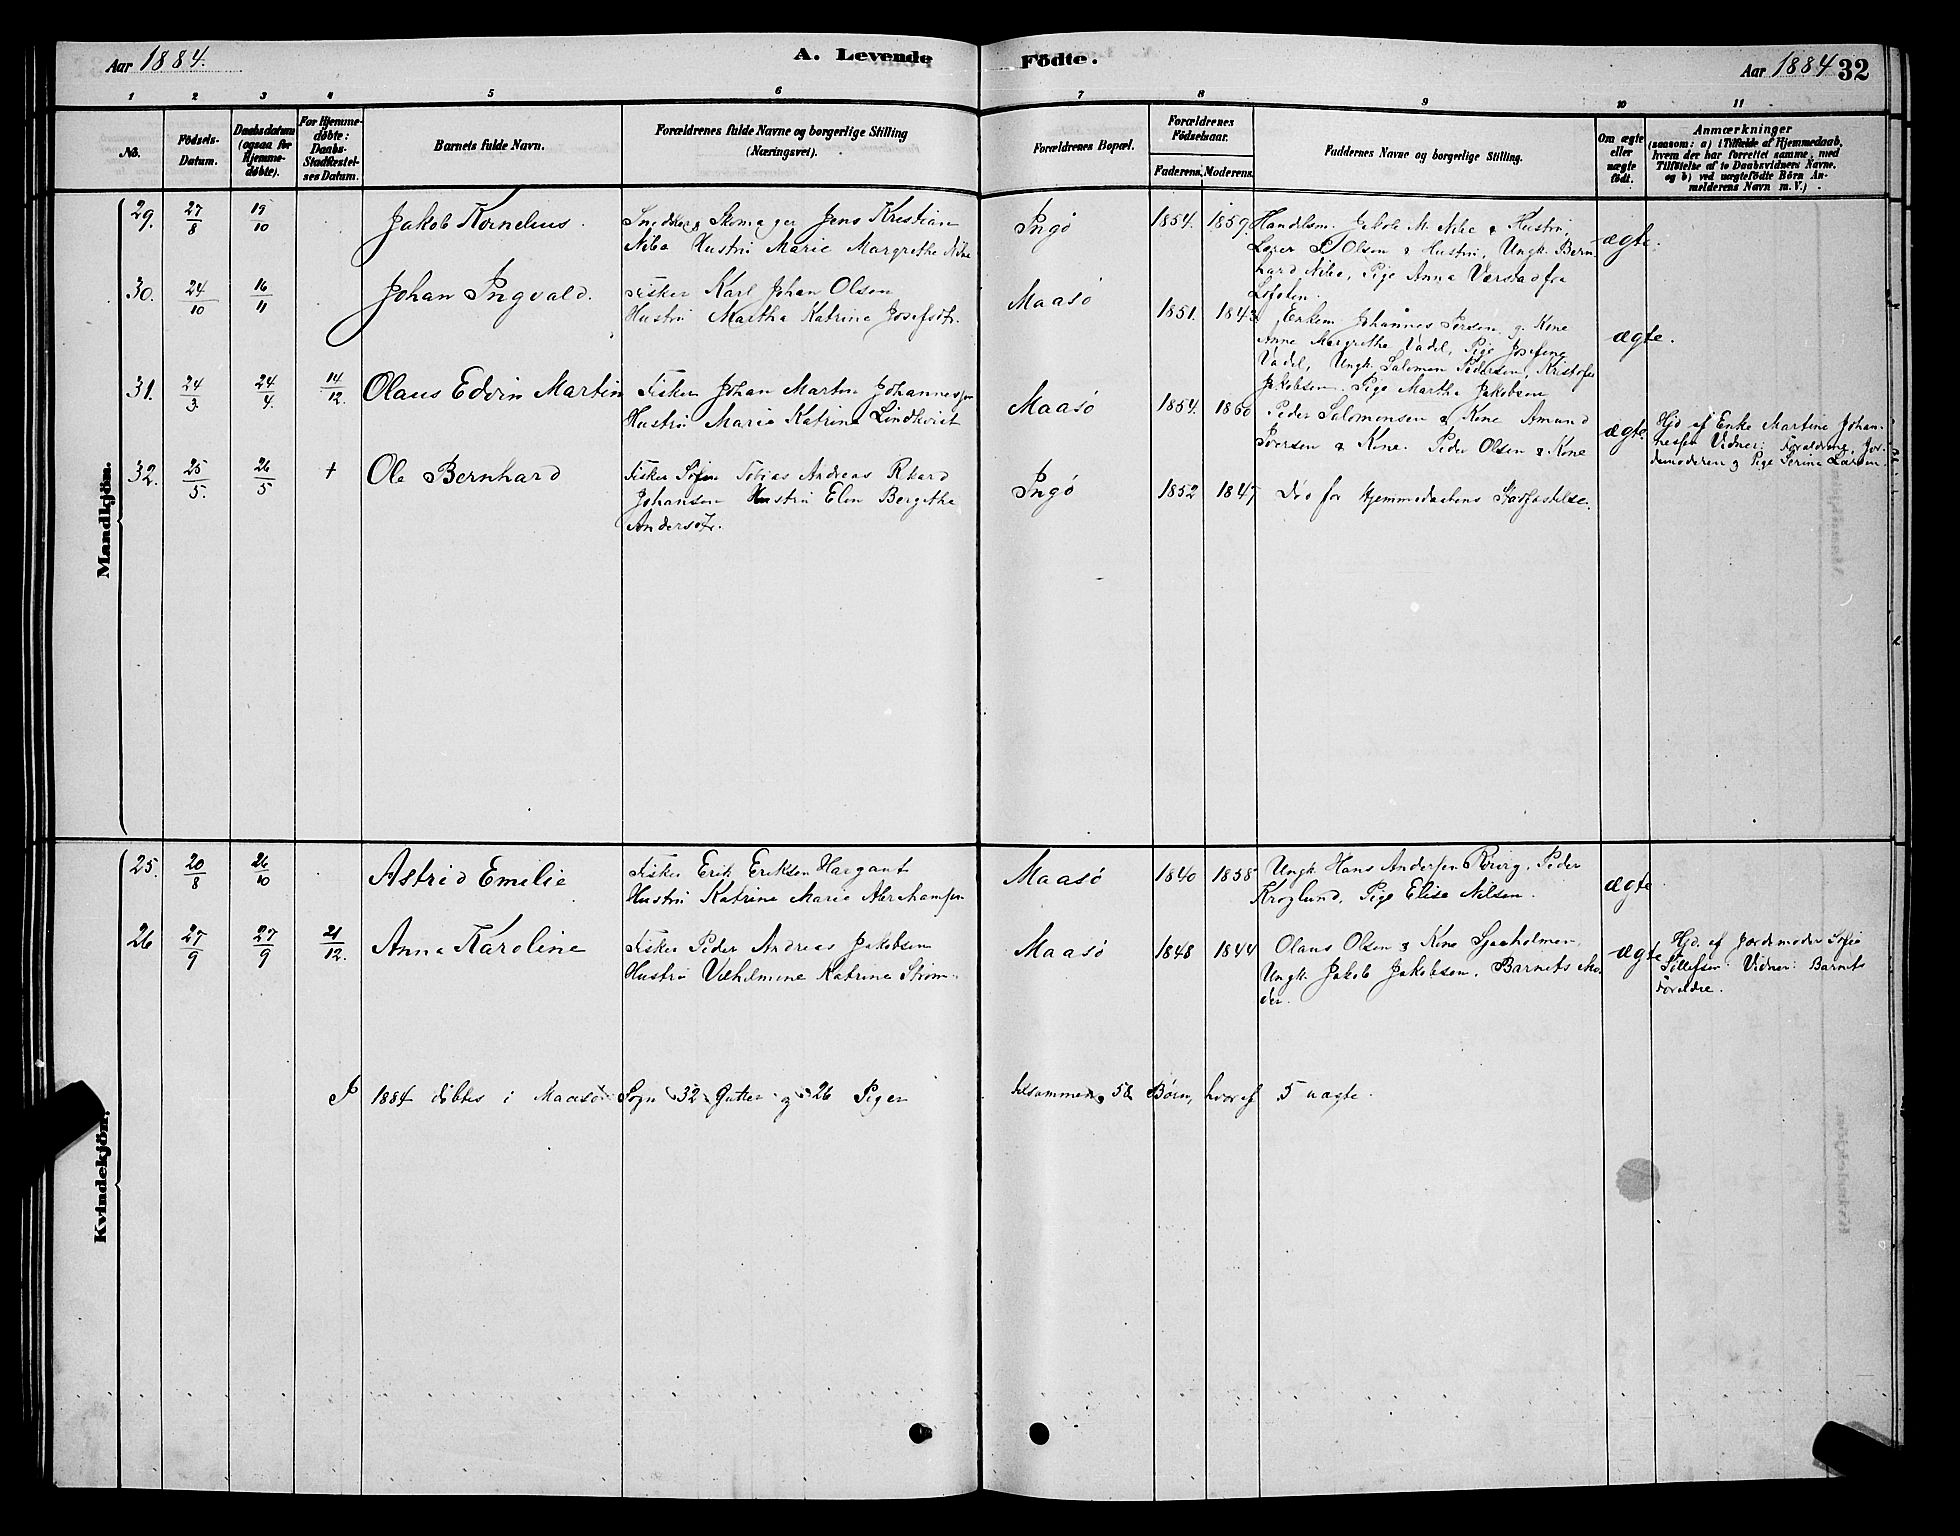 Aar 1884.
A. Levende
Födte.
Aar 1884 32
1 2 3 4 5 6 7 8 9 10 11
No.
Födsels-
Datum.
Daabsdatum
(ogsaa for
Hjemme-
døbte).
For Hjemme-
døbte:
Daabs-
Stadfæstel-
ses Datum.
Barnets fulde Navn.
Forældrenes fulde Navne og borgerlige Stilling
(Næringsvei).
Forældrenes Bopæl.
Forældrenes
Födselsaar.
Faderens. Moderens.
Faddernes Navne og borgerlige Stilling.
Om ægte
eller
uægte
födt.
Anmærkninger
(saasom: a) i Tilfælde af Hjemmedaab,
hvem der har forrettet samme, med
Tilföielse af to Daabsvidners Navne,
og b) ved uægtefödte Börn An-
melderens Navn m. V.)
Mandkjön.
29. 27/8 19/10 Jakob Kornelius.
Skomager Jens Kristian
Nibe Hustru Marie Margrethe Nibe
Ingø 1854. 1859.
Handelsm. Jakob M. Nibe & Hustru,
Lærer Olsen & Hustru, Ungk. Bern
hard Nibe, Pige Anna Værstad fra
Lofoten.
ægte.
30. 24/10 16/11 Johan Ingvald.
Fisker Karl Johan Olsen
Hustru Martha Katrine Josefsdtr.
Maasø 1851. 1843.
Enkem Johannes Iversen, g. Kone
Anne Margrethe Vadel, Pige Josefine
Vadel, Ungk. Salomon Pedersen, Kristofer
Jakobsen, Pige Martha Jakobsen
ægte.
31. 24/3. 24/4. 14/12. Olaus Edvin Martin
Fisker Johan Martin Johannessen
Hustru Marie Katrine Lindkvist
Maasø 1854. 1860
Peder Salomonsen & Kone Amund
Iversen & Kone. Peder Olsen & Kone
ægte.
Hjd af Enke Martine Johan-
nessen Vidner: Forældrene, Jor-
demoderen & Pige Serine Larsen
32. 25/5. 26/5 + Ole Bernhard
Fisker Tobias Andreas
Johansen Hustru Elen Bergitha
Andersdtr.
Ingø 1852 1847
Død før Hjemmedaabens Stadfæstelse.
Kvindekjön.
25. 20/8 26/10 Astrid Emilie
Fisker Erik Eriksen Hargant
Hustru Katrine Marie Abrahamsen
Maasø 1840 1858
Ungk. Hans Andersen Rørvig, Peder
Kroglund, Pige Elise Nilsen.
ægte
26 27/9 27/9 21/12. Anna Karoline
Fisker Peder Andreas Jakobsen
Hustru Vilhelmine Katrine Strøm.
Maasø 1848 1844
Olaus Olsen & Kone Sjaaholmen,
Ungk. Jakob Jakobsen, Barnets Mo
der.
ægte
Hjd. af Jordemoder Sofie
Tollefsen Vidner: Barnets
Forældre.
I 1884 døbtes i Maasø Sogn 32 Gutter og 26 Piger tilsammen 58 Børn, hvoraf 5 uægte.